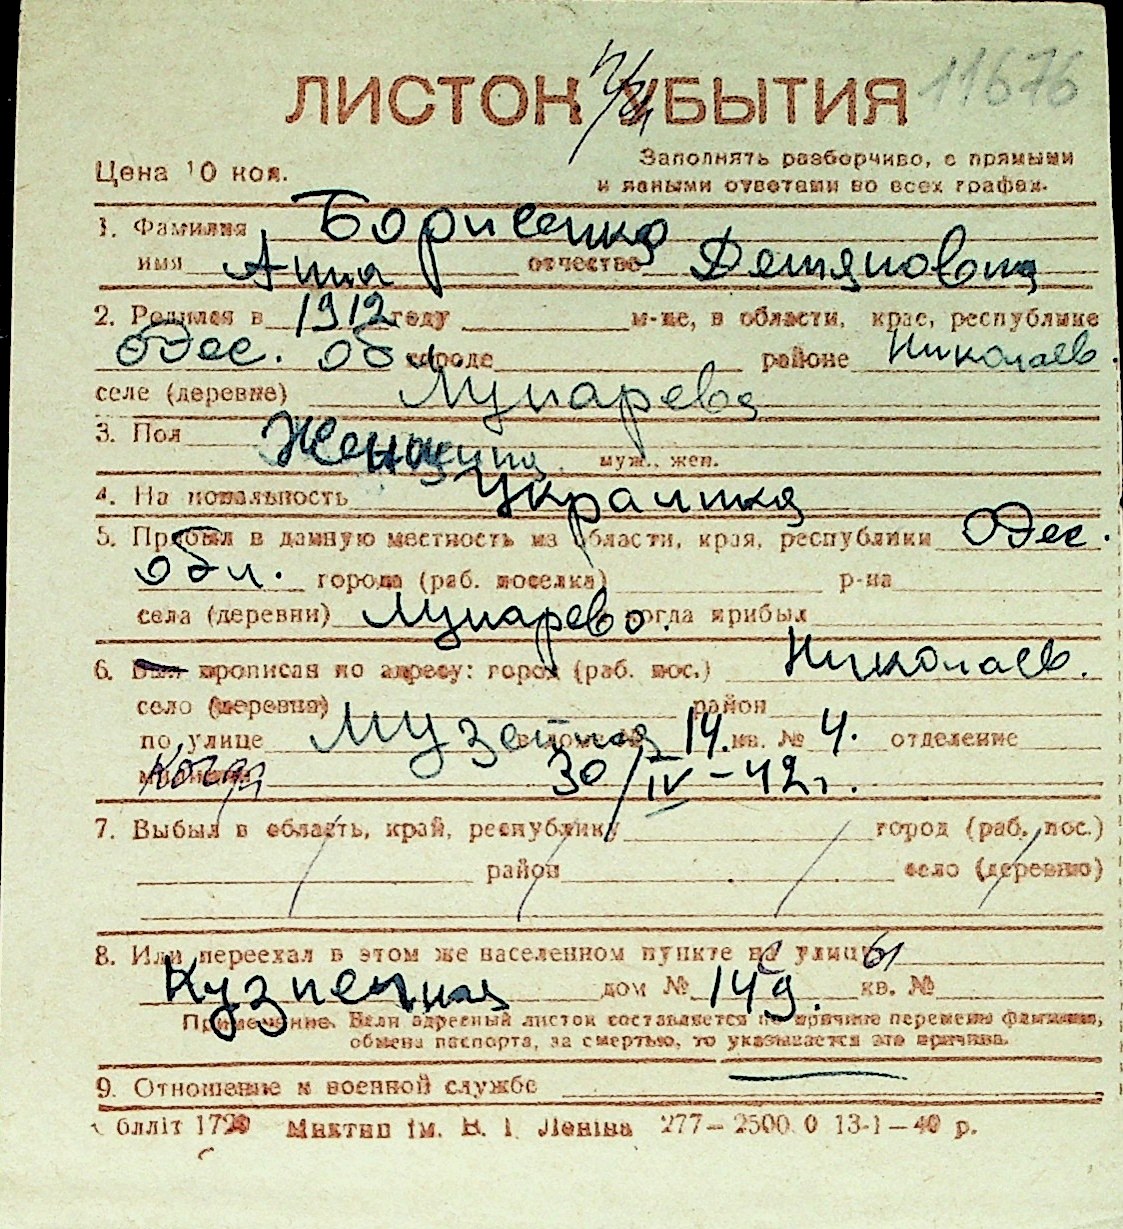 ЛИСТОК УБЫТИЯ 11676
Цена 10 коп.
Заполнять разборчиво, с прямыми
и ясными ответами во всех графах.
1. Фамилия Борисенко
имя Анна отчество Демяновна
2. Родился в 1912 году м-це, в области, крае, республике
Одес. об. городе районе Николаев.
селе (деревне) Лупарева
3. Пол Женщина муж., жен.
4. Национальность Украинка
5. Прибыл в данную местность из области, края, республики Одес.
обл. города (раб. поселка) р-на
села (деревни) Лупарево. когда прибыл
6. Был прописан по адресу: город (раб. пос.) Николаев.
село (деревня) район
по улице Музейная в доме № 14. кв. № 4. отделение
милиции Когда 30/IV-42г.
7. Выбыл в область, край, республику город (раб. пос.)
район село (деревню)
8. Или переехал в этом же населенном пункте на улицу
Кузнечная дом № 149. кв. №
Примечание. Если адресный листок составляется по причине перемены фамилии,
обмена паспорта, за смертью, то указывается эта причина.
9. Отношение к военной службе
блліт 1729 Миктип ім. В. І. Леніна 277—2500 0 13-1—40 р.